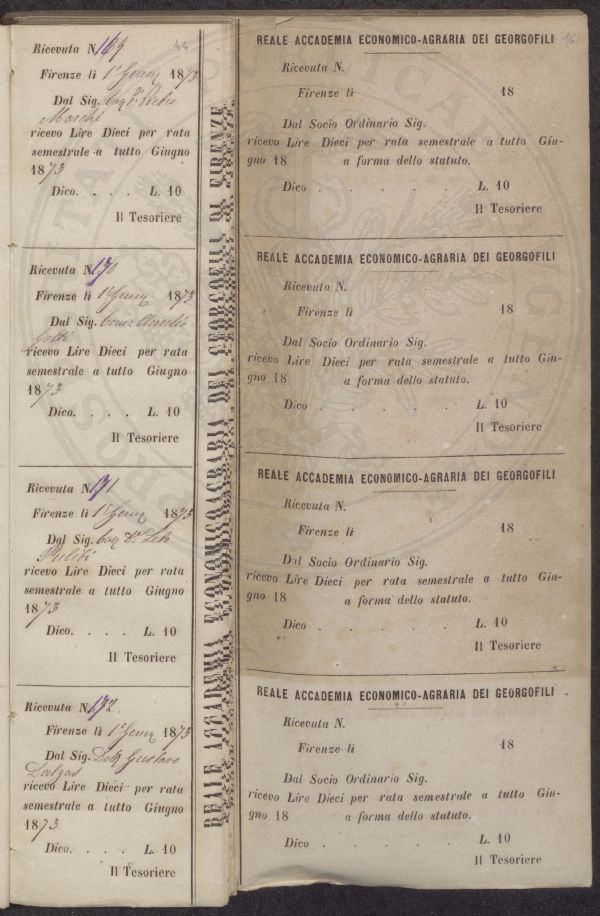 44
Ricevuta N. 169
Firenze lì 1° Genn 1873
Dal Sig. Cav Dr Pietro
Marchi
ricevo Lire Dieci per rata
semestrale a tutto Giugno
1873
Dico. . . . L. 10
Il Tesoriere
Ricevuta N. 170
Firenze lì 1° Genn 1873
Dal Sig. Aurelio
Gotti
ricevo Lire Dieci per rata
semestrale a tutto Giugno
1873
Dico. . . . L. 10
Il Tesoriere
Ricevuta N. 171
Firenze lì 1° Genn 1873
Dal Sig. Cav
ricevo Lire Dieci per rata
semestrale a tutto Giugno
1873
Dico. . . . L. 10
Il Tesoriere
Ricevuta N. 172
Firenze lì 1° Genn 1873
Dal Sig. Gustavo
Dalgas
ricevo Lire Dieci per rata
semestrale a tutto Giugno
1873
Dico. . . . L. 10
Il Tesoriere
REALE ACCADEMIA ECONOMICO AGRARIA DEI GEORGOFILI DI FIRENZE
REALE ACCADEMIA ECONOMICO-AGRARIA DEI GEORGOFILI
Ricevuta N.
Firenze lì 18
Dal Socio Ordinario Sig.
ricevo Lire Dieci per rata semestrale a tutto Giu-
gno 18 a forma dello statuto.
Dico . . . . . L. 10
Il Tesoriere
REALE ACCADEMIA ECONOMICO-AGRARIA DEI GEORGOFILI
Ricevuta N.
Firenze lì 18
Dal Socio Ordinario Sig.
ricevo Lire Dieci per rata semestrale a tutto Giu-
gno 18 a forma dello statuto.
Dico . . . . . L. 10
Il Tesoriere
REALE ACCADEMIA ECONOMICO-AGRARIA DEI GEORGOFILI
Ricevuta N.
Firenze lì 18
Dal Socio Ordinario Sig.
ricevo Lire Dieci per rata semestrale a tutto Giu-
gno 18 a forma dello statuto.
Dico . . . . . L. 10
Il Tesoriere
REALE ACCADEMIA ECONOMICO-AGRARIA DEI GEORGOFILI
Ricevuta N.
Firenze lì 18
Dal Socio Ordinario Sig.
ricevo Lire Dieci per rata semestrale a tutto Giu-
gno 18 a forma dello statuto.
Dico . . . . . L. 10
Il Tesoriere